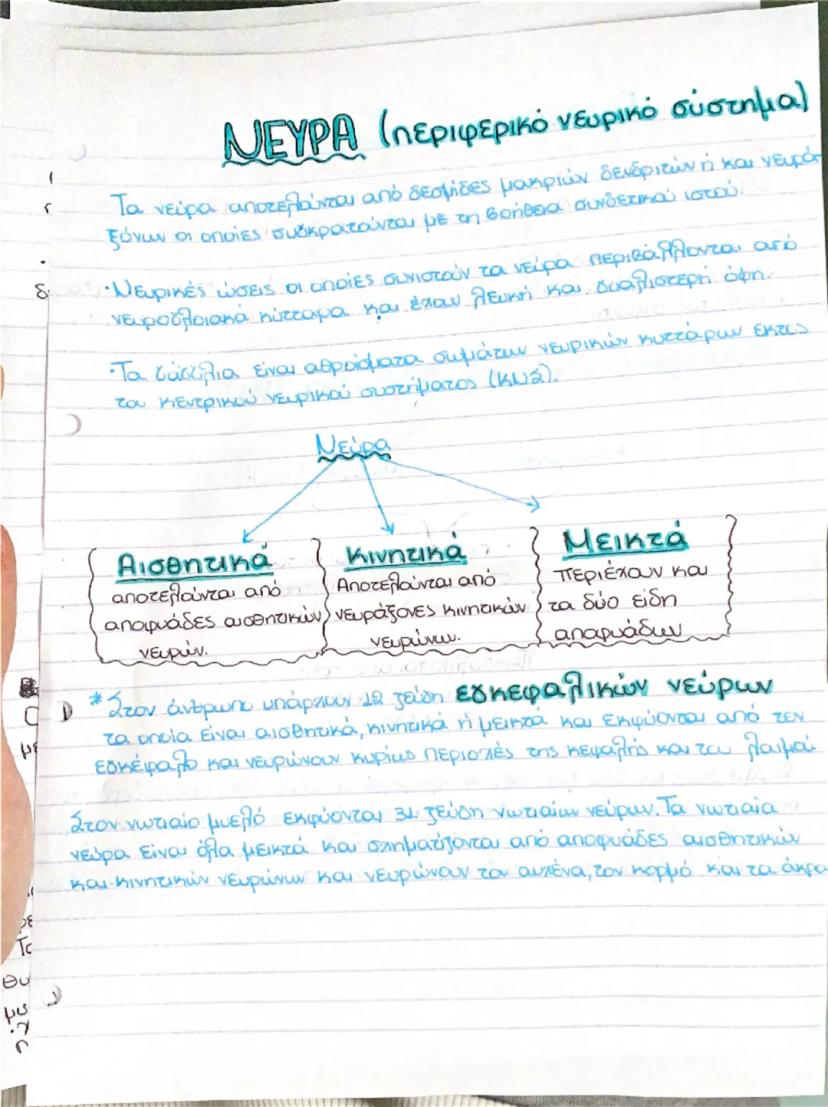 ΝΕΥΡΑ (περιφερικό νευρικό σύστημα)
Τα νεύρα αποτελούνται από δεσμίδες μακριών δενδριτών ή και νευρά-
ξόνων οι οποίες συγκρατούνται με τη βοήθεια συνδετικού ιστού.
·Νευρικές ώσεις οι οποίες συνιστούν τα νεύρα περιβάλλονται από
νευρογλοιακά κύτταρα και έχουν λευκή και γυαλιστερή όψη.
·Τα γάγγλια είναι αθροίσματα σωμάτων νευρικών κυττάρων εκτός
του κεντρικού νευρικού συστήματος (ΚΝΣ).
Νεύρα
Αισθητικά
αποτελούνται από
αποφυάδες αισθητικών
νευρών.
Κινητικά
Αποτελούνται από
νευράξονες κινητικών
νευρώνων.
Μεικτά
περιέχουν και
τα δύο είδη
αποφυάδων
*Στον άνθρωπο υπάρχουν 12 ζεύδη εγκεφαλικών νεύρων
τα οποία είναι αισθητικά, κινητικά ή μεικτά και εκφύονται από τον
εγκέφαλο και νευρώνουν κυρίως περιοχές της κεφαλής και του λαιμού
Στον νωτιαίο μυελό εκφύονται 31 ζεύδη νωτιαίων νεύρων. Τα νωτιαία
νεύρα είναι όλα μεικτά και σχηματίζονται από αποφυάδες αισθητικών
και κινητικών νευρώνων και νευρώνουν τον αυχένα, τον κορμό και τα άκρα